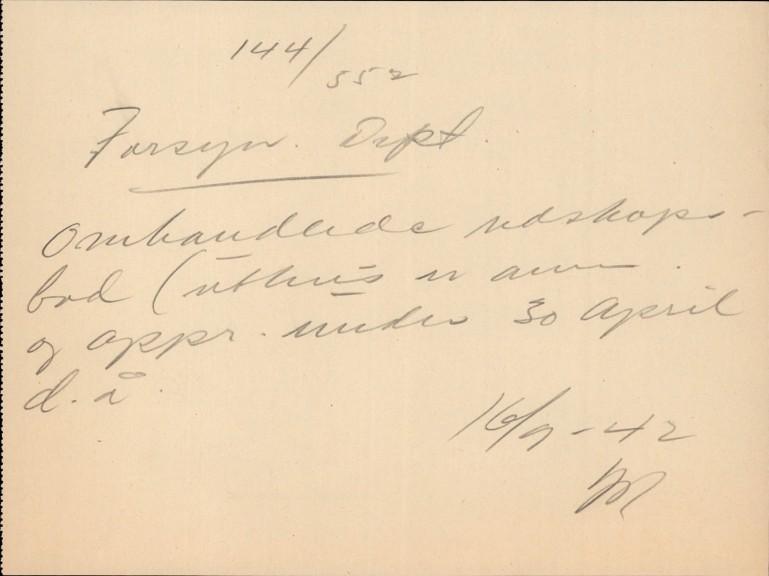 144/552
Forsyn. Dept.
Omhandlede redskaps-
bod (uthus er anm.
og appr. under 30 April
d. å.
16/9-42